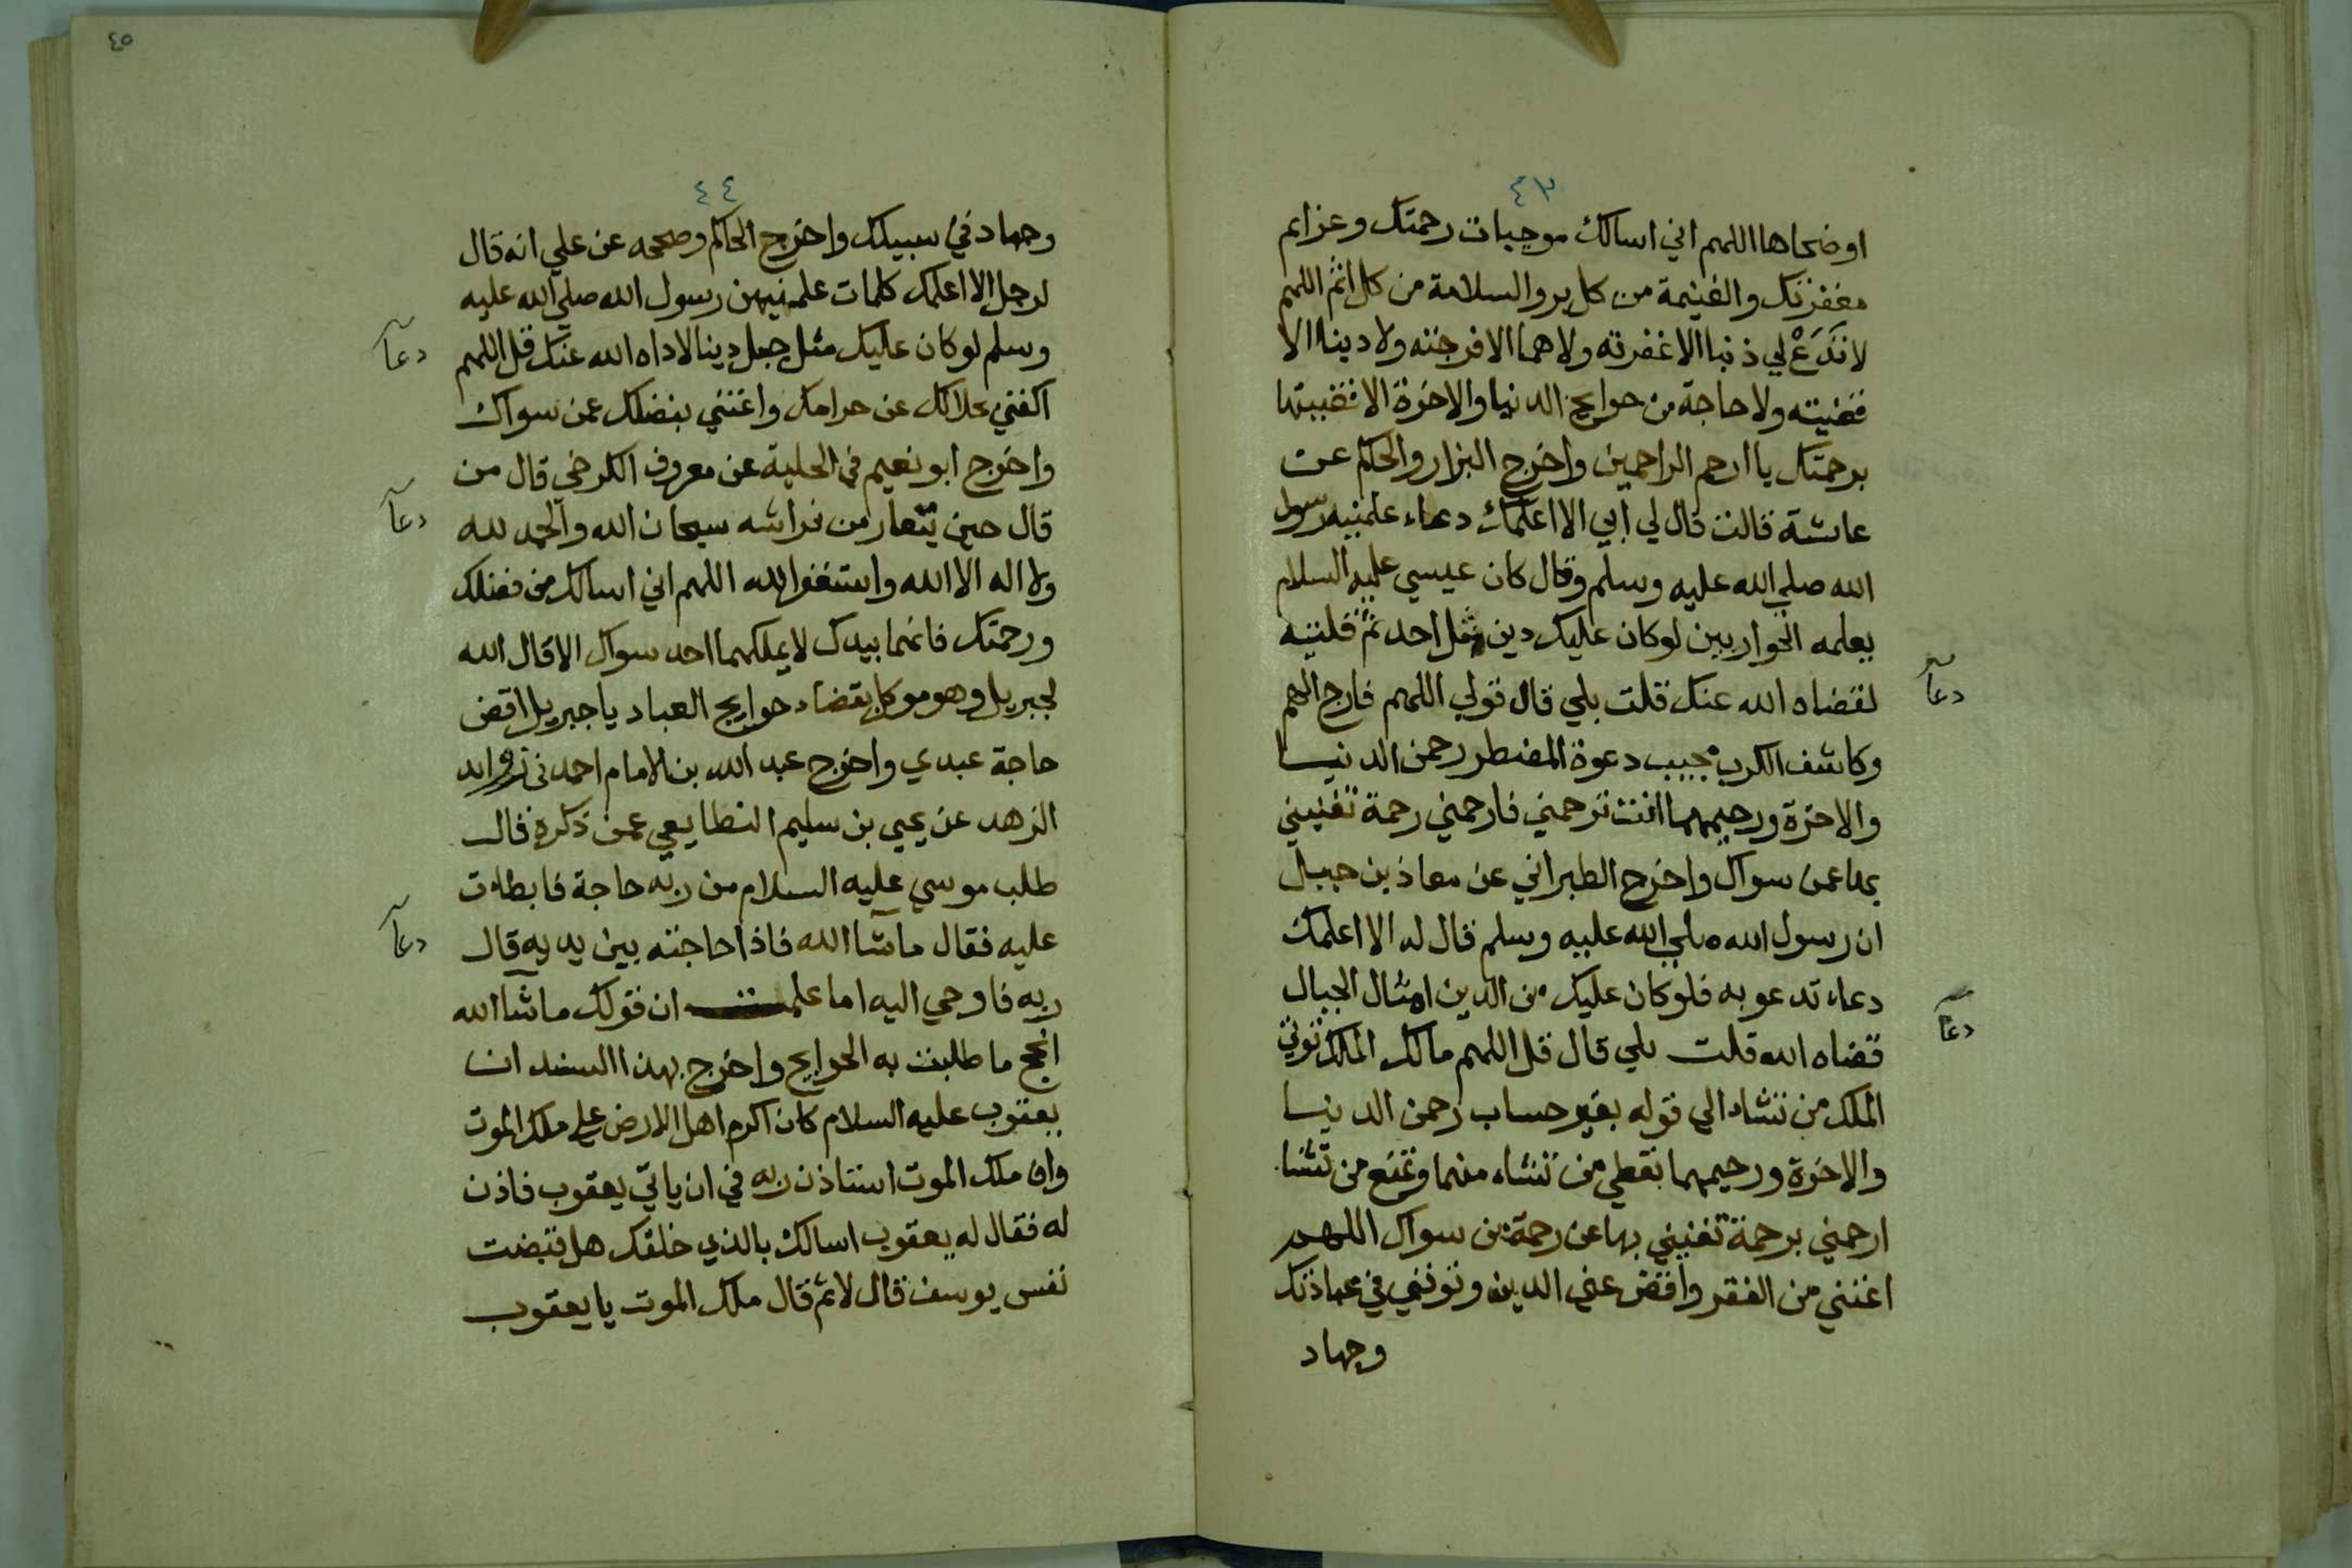 ٤٣
او ضحاها اللهم اني اسالك موجبات رحمتك وعزايم
مغفرتك والغنيمة من كل بر والسلامة من كل اثم اللهم
لا تَدَعْ لي ذنبا الا غفرته ولا هما الا فرجته ولا دينا الا
قضيته ولا حاجة من حوايج الدنيا والاخرة الا قضيتها
برحمتك يا ارحم الراحمين واخرج البزار والحاكم عن
عائشة قالت قال لي ابي الا اعلمك دعاء علمنيه رسول
الله صلي الله عليه وسلم وقال كان عيسي عليه السلام
يعلمه الحواريين لو كان عليك دين مثل احد ثم قلتيه
دعآ
لقضاه الله عنك قلت بلي قال قولي اللهم فارج الهم
وكاشف الكرب مجيب دعوة المضطر رحمن الدنيا
والاخرة ورحيمهما انت ترحمني فارحمني رحمة تغنيني
بها عمن سواك واخرج الطبراني عن معاذ بن جبل
ان رسول الله صلي الله عليه وسلم قال له الا اعلمك
دعاء تدعو به فلو كان عليك من الدين امثال الجبال
دعآ
قضاه الله قلت بلي قال قل اللهم مالك الملك توتي
الملك من تشاء الي قوله بغير حساب رحمن الدنيا
والاخرة ورحيمهما تعطي من تشاء منهما وتمنع من تشا
ارحمني برحمة تغنيني بها عن رحمة من سواك اللهم
اغنني من الفقر واقض عني الدين وتوفني في عبادتك
وجهاد
٤٥
٤٤
وجهاد في سبيلك واخرج الحاكم وصححه عن علي انه قال
لرجل الا اعلمك كلمات علمنيهن رسول الله صلي الله عليه
وسلم لو كان عليك مثل جبل دينا لاداه الله عنك قل اللهم
دعآ
اكفني بحلالك عن حرامك واغنني بفضلك عمن سواك
واخرج ابو نعيم في الحلية عن معروف الكرخي قال من
قال حين يتعار من فراشه سبحان الله والحمد لله
دعآ
ولا اله الا الله واستغفر الله اللهم اني اسالك من فضلك
ورحمتك فانهما بيدك لا يملكهما احد سواك الا قال الله
لجبريل وهو موكل بقضاء حوايج العباد يا جبريل اقض
حاجة عبدي واخرج عبد الله بن الامام احمد في زوايد
الزهد عن يحيي بن سليم الطايفي عمن ذكره قال
طلب موسي عليه السلام من ربه حاجة فابطات
عليه فقال ما شآ الله فاذا حاجته بين يديه قال
دعآ
ربه فاوحي اليه اما علمت ان قولك ما شآ الله
انجح ما طلبت به الحوايج واخرج بهذا السند ان
يعقوب عليه السلام كان اكرم اهل الارض علي ملك الموت
وان ملك الموت استاذن ربه في ان ياتي يعقوب فاذن
له فقال له يعقوب اسالك بالذي خلقك هل قبضت
نفس يوسف قال لا ثم قال ملك الموت يا يعقوب